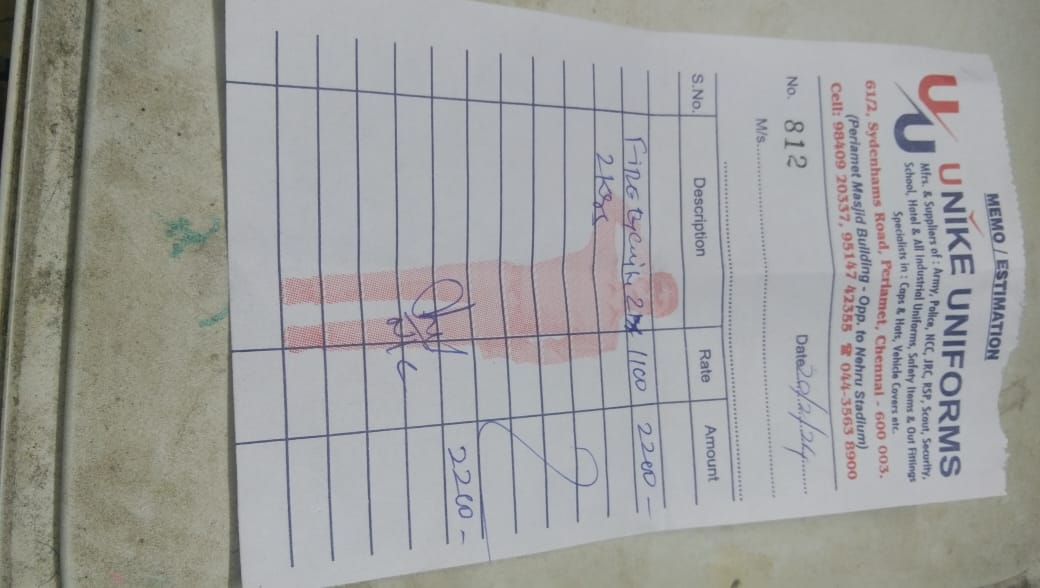 MEMO / ESTIMATION
UNIKE UNIFORMS
Mfrs. & Suppliers of : Army, Police, NCC, JRC, RSP, Scout, Security,
School, Hotel & All Industrial Uniforms, Safety Items & Out Fittings
Specialists in : Caps & Hats, Vehicle Covers etc.
61/2, Sydenhams Road, Periamet, Chennai - 600 003.
(Periamet Masjid Building - Opp. to Nehru Stadium)
Cell: 98409 20337, 95147 42355 ☎ 044-3563 8900
No. 812 Date
M/s.
S.No. Description Rate Amount
Fire 1100 2200 -
2200 -